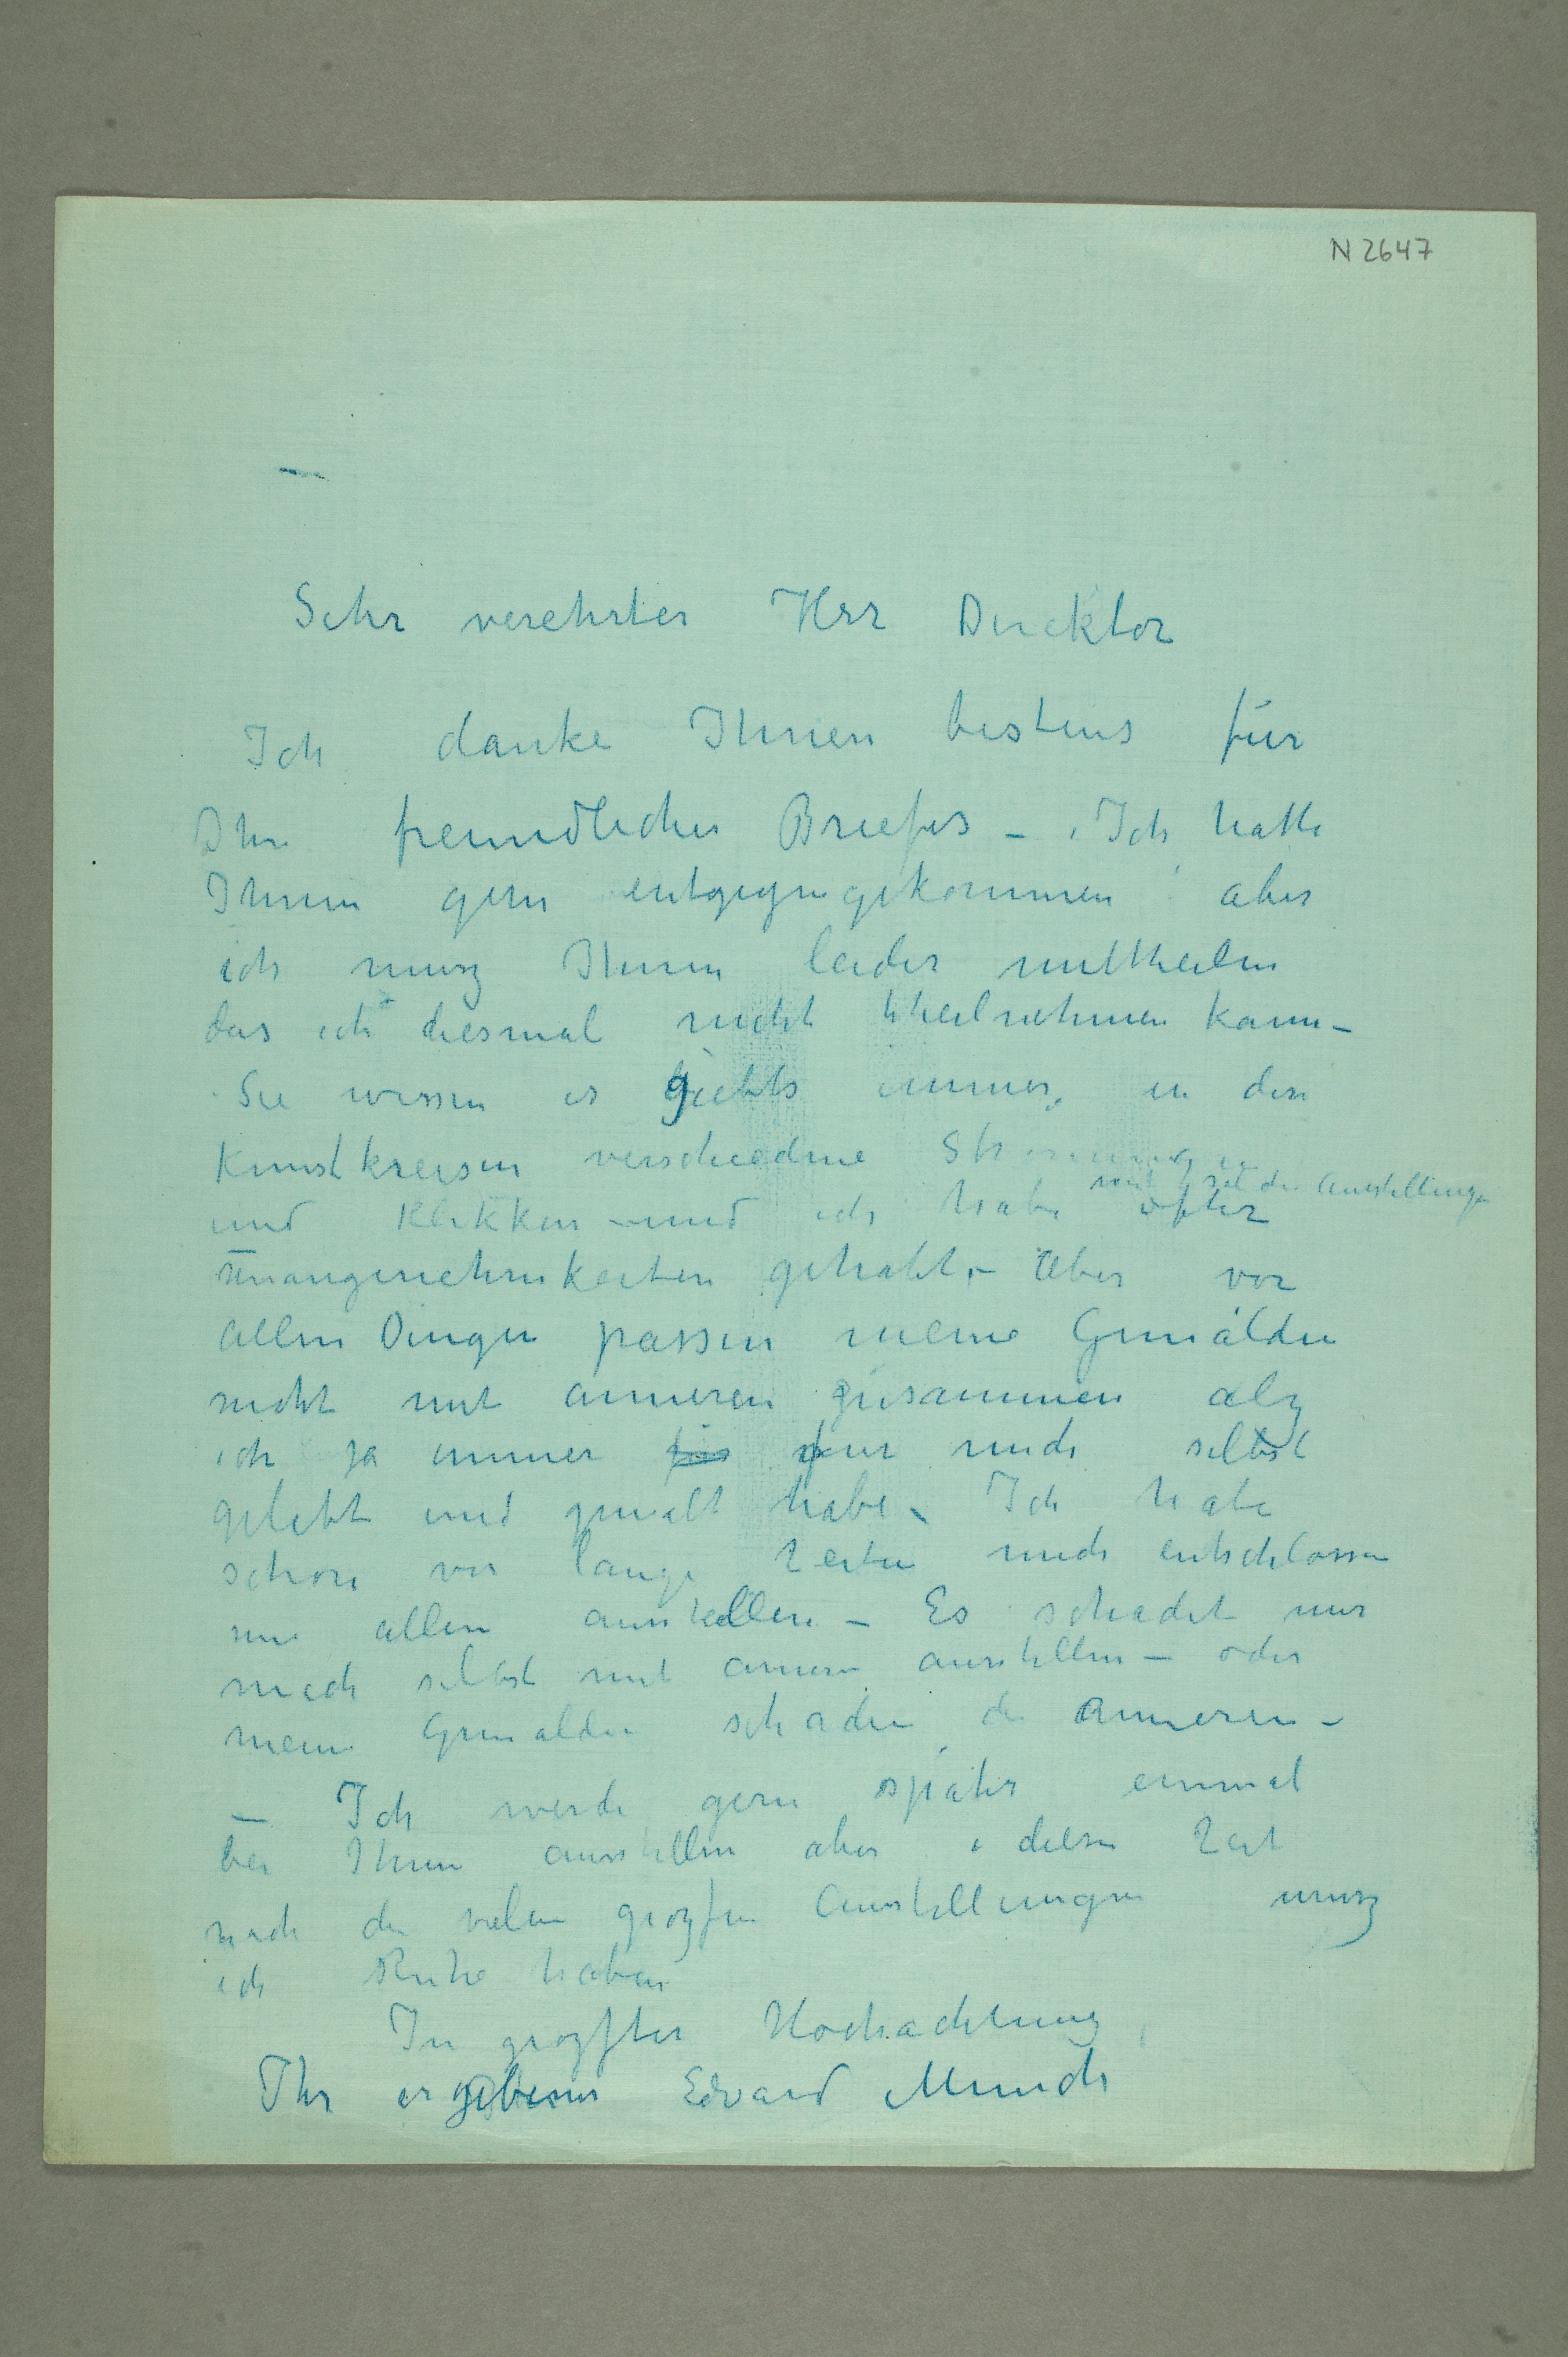 N 2647
Sehr verehrter Herr Direktor
Ich danke Ihnen bestens für
Ihr freundliches Briefes – Ich hatte
Ihnen gern entgegengekommen aber
ich musz Ihnen leider mittheilen
das ich diesmal nicht theilnehmen kann –
Sie wissen es giebts immer, in den
Kunstkreisen verschiedene Stromungen
und Klikken – und ich habe öfter
mit den Austellungen
unangenehmkeiten gehabt, – Aber vor
allem Dingen passen meine Gemälden
nicht mit anneren zusammen alz
ich ja immer für mich selbst
gelebt und gemalt habe. Ich habe
schon vor lange Zeiten mich entschlossen
nur allein ausstellen – Es schadet nur
mich selbst mit anneren ausstellen – oder
meine Gemälden schaden die anneren –
– Ich werde gern später einmal
bei Ihnen ausstellen aber i dieser Zeit
nach den vielen groszsen Ausstellungen musz
ich Ruhe haben
In groszster Hochachtung
Ihr ergebener Edvard Munch